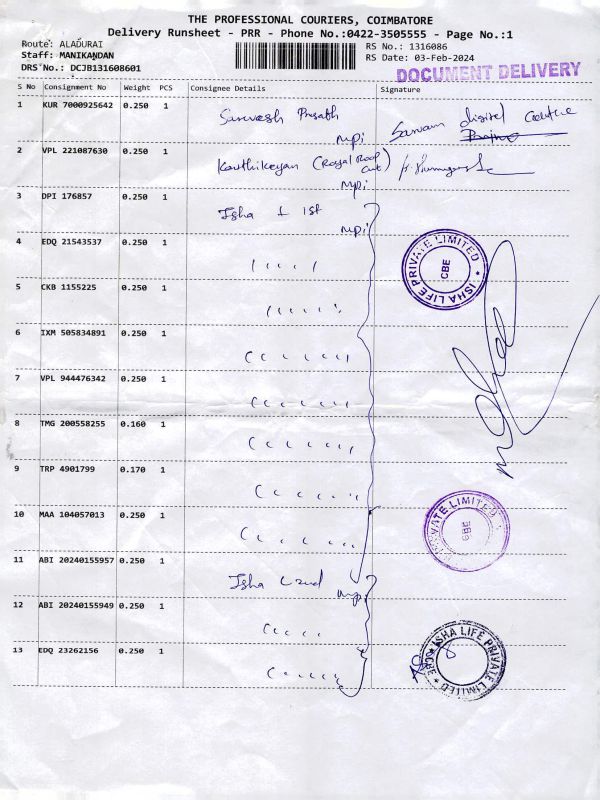 THE PROFESSIONAL COURIERS, COIMBATORE
Delivery Runsheet - PRR - Phone No.:0422-3505555 - Page No.:1
Route: ALADURAI
Staff: MANIKANDAN
DRS No.: DCJB131608601
RS No.: 1316086
RS Date: 03-Feb-2024
DOCUMENT DELIVERY
S No Consignment No Weight PCS Consignee Details Signature
1 KUR 7000925642 0.250 1
2 VPL 221087630 0.250 1 Karthikeyan (Royal Roof
3 DPI 176857 0.250 1 Isha 1st
4 EDQ 21543537 0.250 1
ISHA LIFE PRIVATE LIMITED
CBE
5 CKB 1155225 0.250 1
6 IXM 505834891 0.250 1
7 VPL 944476342 0.250 1
8 TMG 200558255 0.160 1
9 TRP 4901799 0.170 1
10 MAA 104057013 0.250 1
PRIVATE LIMITED
CBE
11 ABI 20240155957 0.250 1 Isha 2nd
12 ABI 20240155949 0.250 1
13 EDQ 23262156 0.250 1
ISHA LIFE PRIVATE LIMITED
CBE